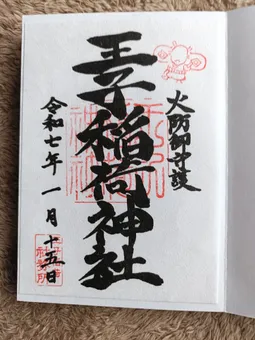 火防御守護
王子稲荷神社
令和七年一月十五日